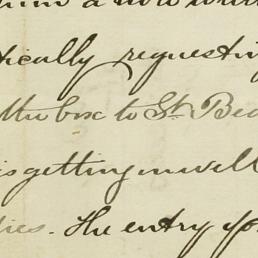 him a
tically requesting
the box to St. Be
is getting in well
ies. The entry of